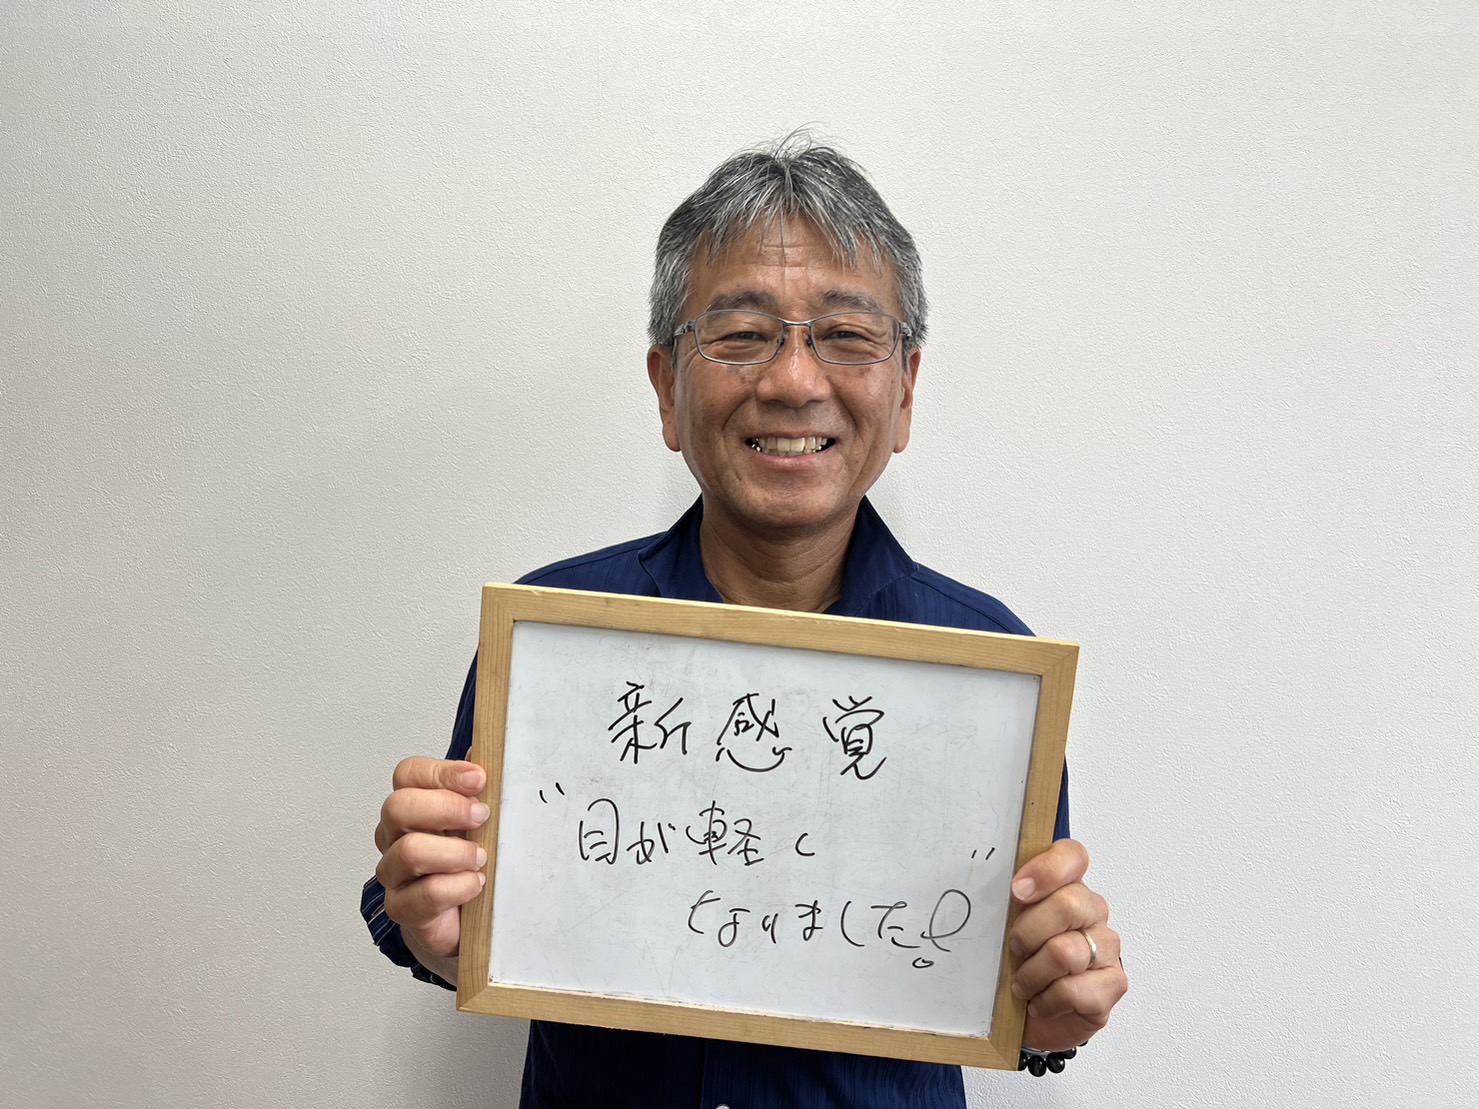 新感覚
"目が軽く
なりました!"